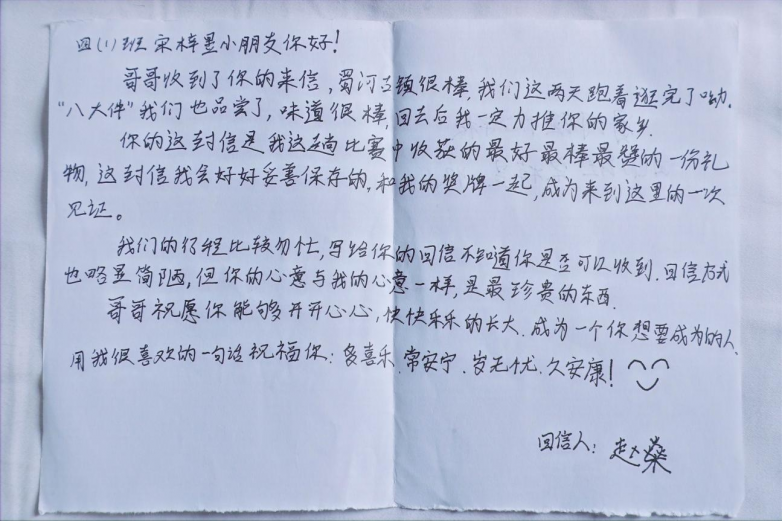 四(1)班宋梓墨小朋友你好!
哥哥收到了你的来信,蜀河古镇很棒,我们这两天跑着逛完了呦.
“八大件”我们也品尝了,味道很棒,回去后我一定力推你的家乡.
你的这封信是我这趟比赛中收获的最好最棒最赞的一份礼
物,这封信我会好好妥善保存的,和我的奖牌一起,成为来到这里的一次
见证。
我们的行程比较匆忙,写给你的回信不知道你是否可以收到.回信方式
也略显简陋,但你的心意与我的心意一样,是最珍贵的东西.
哥哥祝愿你能够开开心心,快快乐乐的长大.成为一个你想要成为的人.
用我很喜欢的一句话祝福你:多喜乐.常安宁.岁无忧.久安康!
回信人:赵燊